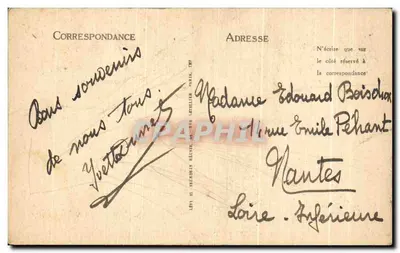 CORRESPONDANCE
Bons souvenirs
de nous tous.
ADRESSE
N'écrire que sur
le côté réservé à
la correspondance
Madame Edouard
rue Emile Péhant
Nantes
Loire-Inférieure